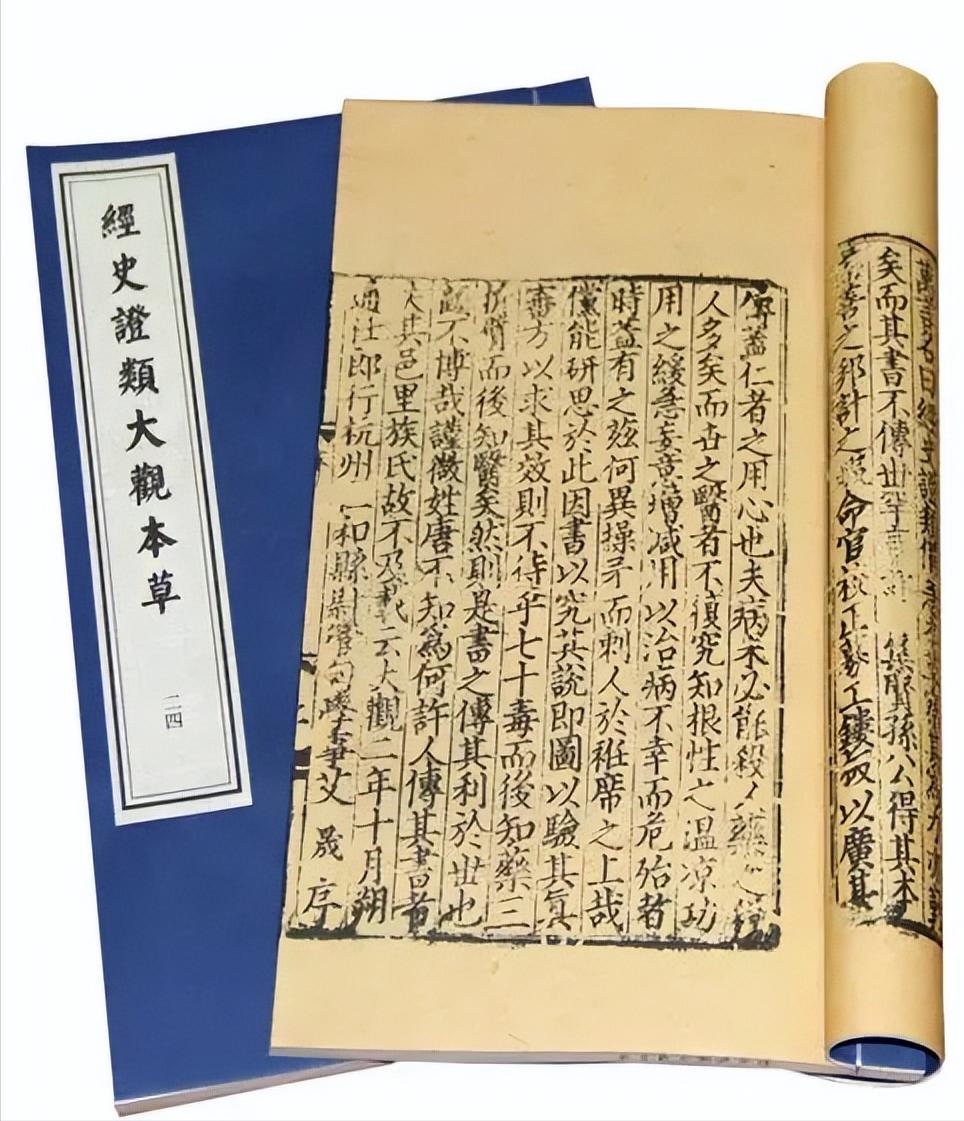 經史證類大觀本草
二四
萬言名曰經史證類
矣而其書不傳世罕言焉 集賢孫公得其本
而善之邦計之暇命官校正募工鏤板以廣其
傳蓋仁者之用心也夫病未必能殺人藥之殺
人多矣而世之醫者不復究知根性之溫涼功
用之緩急妄意增減用以治病不幸而危殆者
時蓋有之茲何異操矛而刺人於袵席之上哉
儻能研思於此因書以究其說即圖以驗其真
審方以求其效則不待乎七十毒而後知藥三
折臂而後知醫矣然則是書之傳其利於世也
顧不博哉謹微姓唐不知為何許人傳其書者
失其邑里族氏故不及載云大觀二年十月朔
通仕郎行杭州仁和縣尉管句學事艾 晟 序